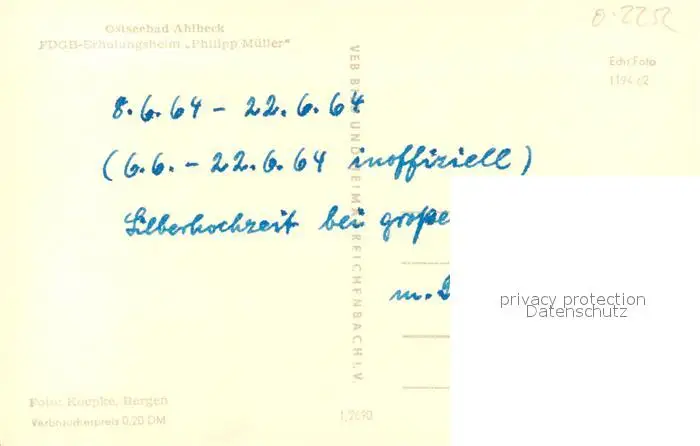 Ostseebad Ahlbeck
FDGB-Erholungsheim „Philipp Müller"
Echt Foto
8.6.64 – 22.6.64
(6.6. – 22.6.64 inoffiziell)
Silberhochzeit bei große
m.
VEB BILD UND HEIMAT REICHENBACH I. V.
privacy protection
Datenschutz
Foto: Koepke, Bergen
Verbraucherpreis 0,20 DM